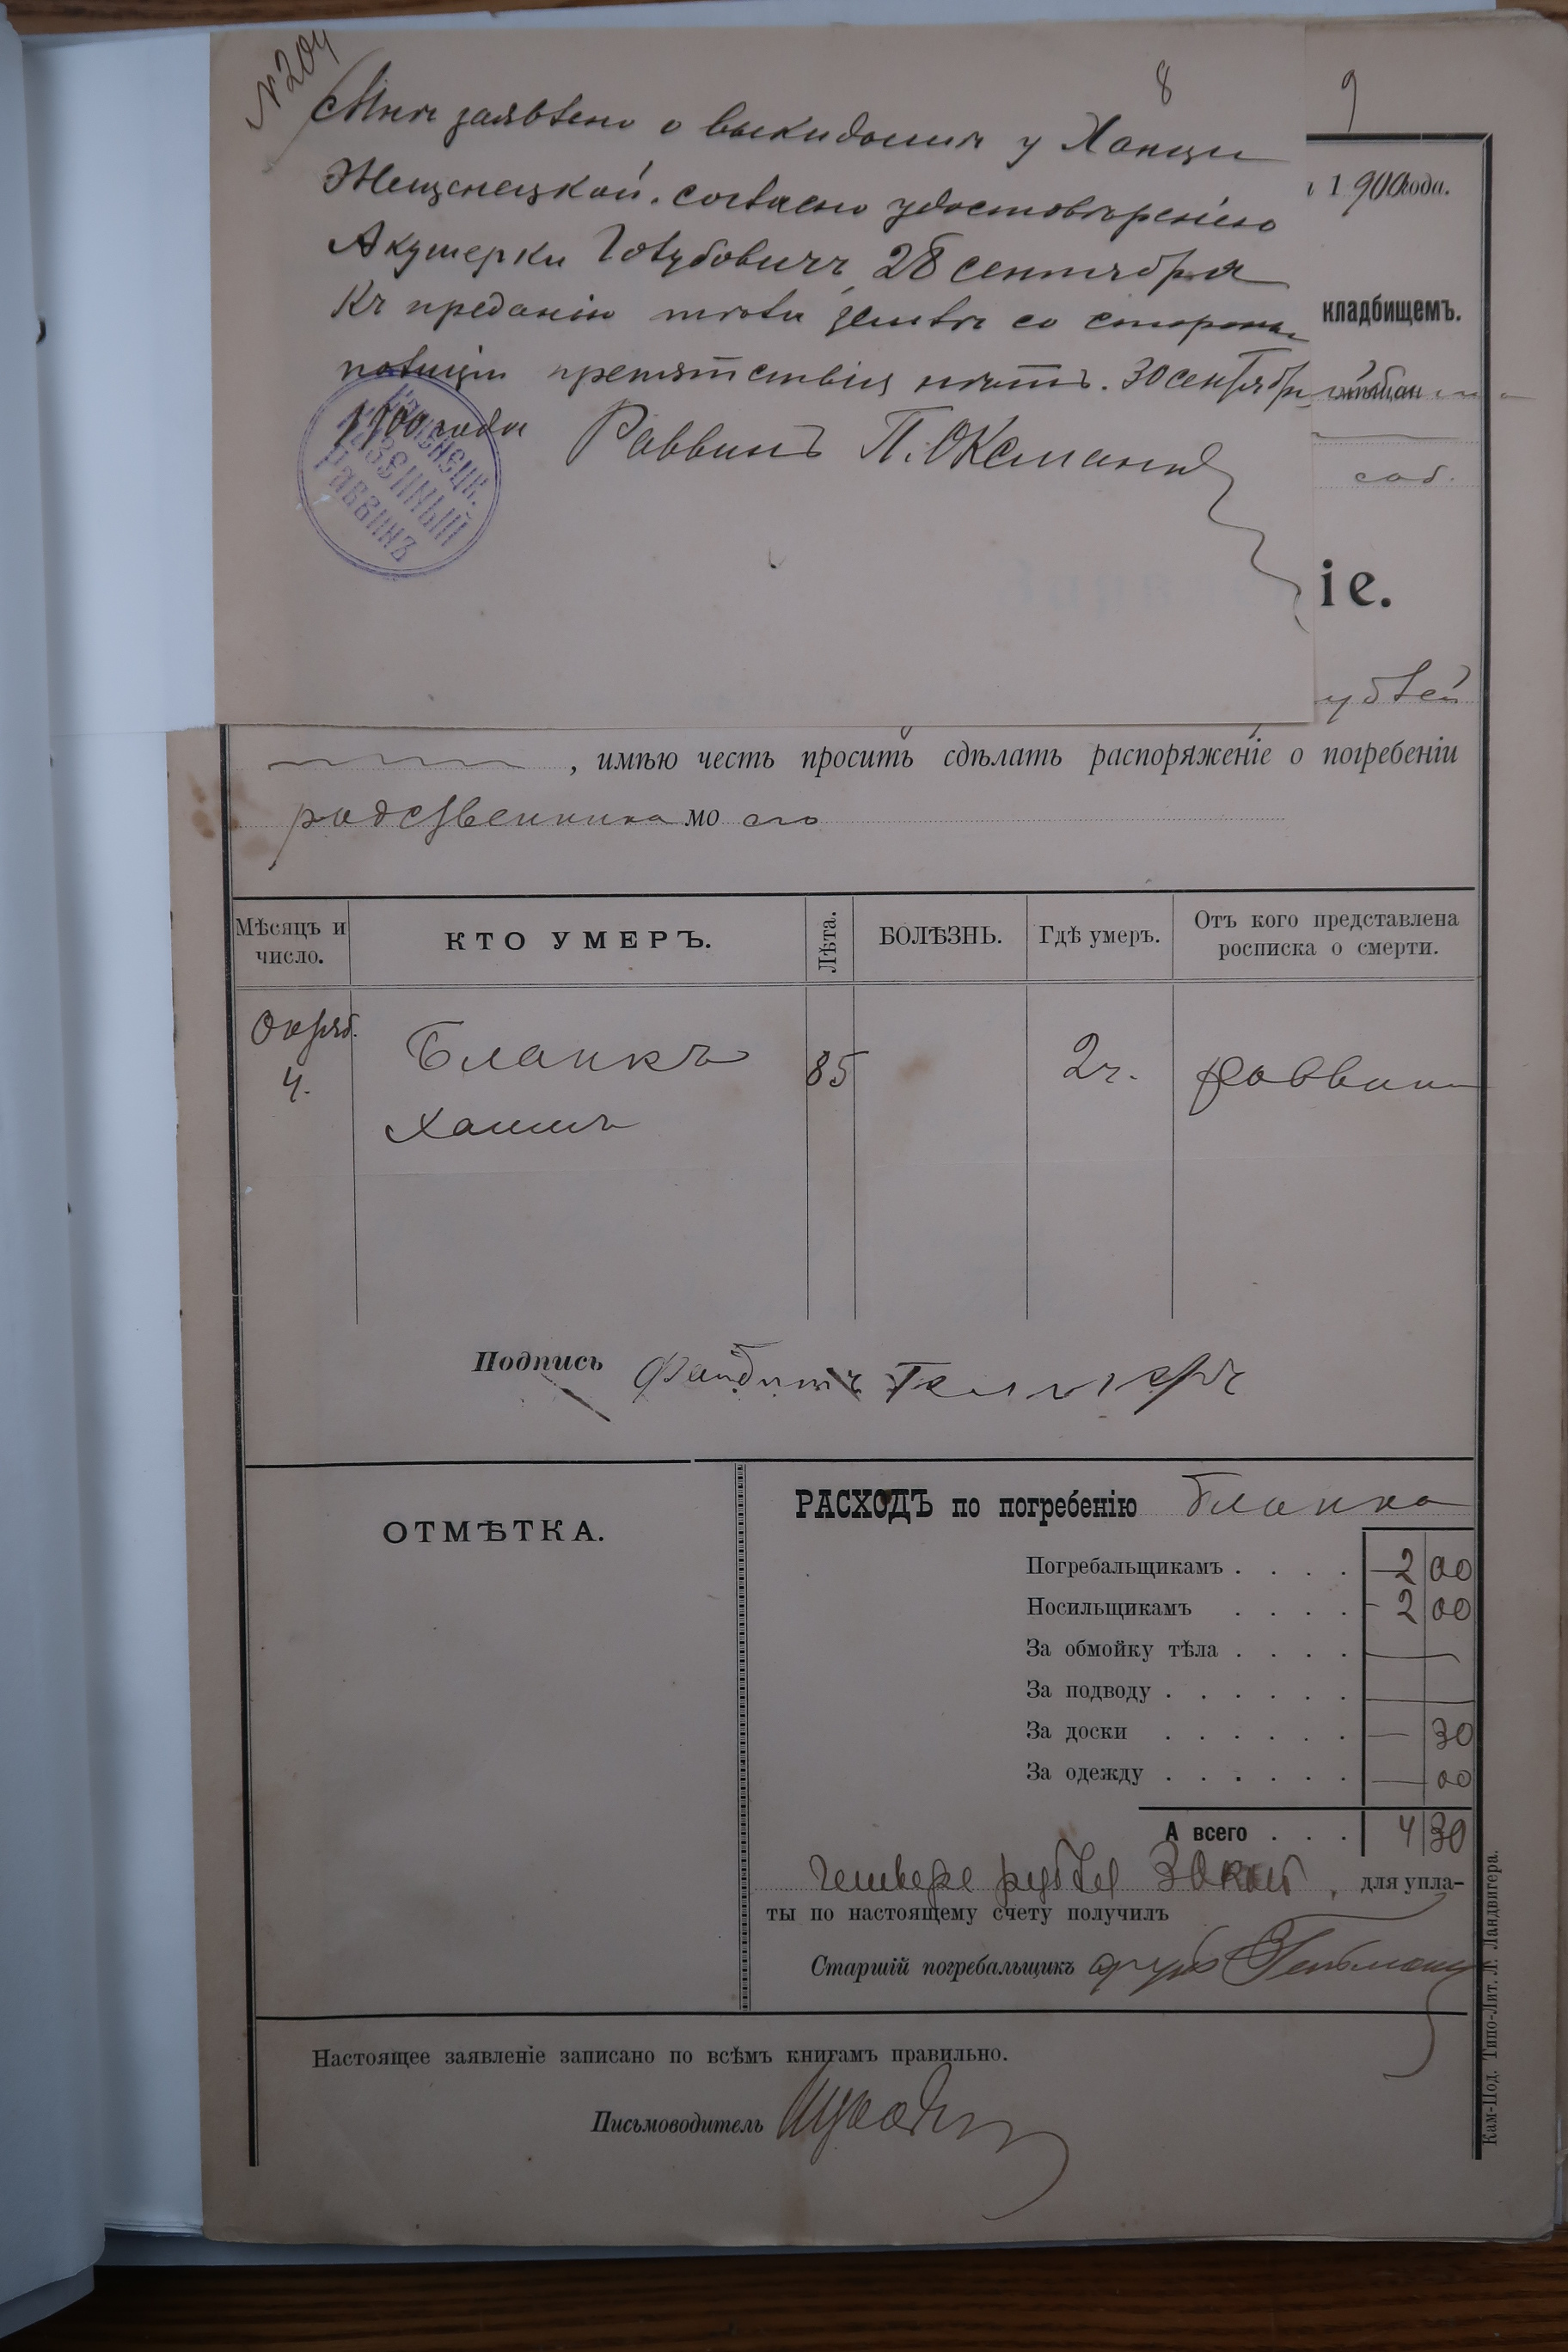 № 204
8
9
Мнѣ заявлено о выкидышѣ у Ханци
согласно удостовѣренію
Акушерки Голубовичъ 28 сентября
Къ преданію тѣла землѣ со стороны
полиціи препятствія нѣтъ. 30 сентября
1900 года Раввинъ П. Оксманъ
КАМЕНЕЦК.
КАЗЕННЫЙ
РАВВИНЪ
1900 года.
кладбищемъ.
соб.
іе.
, имѣю честь просить сдѣлать распоряженіе о погребеніи
родственника моего
Мѣсяцъ и число.
КТО УМЕРЪ.
Лѣта.
БОЛѢЗНЬ.
Гдѣ умеръ.
Отъ кого представлена росписка о смерти.
Октяб. 4.
Бланкъ
Хаимъ
85
2ч.
Раввин
Подпись
ОТМѢТКА.
РАСХОДЪ по погребенію Бланка
Погребальщикамъ . . . . 2 00
Носильщикамъ . . . . 2 00
За обмойку тѣла . . . . —
За подводу . . . . . . —
За доски . . . . . . — 30
За одежду . . . . . . — 00
А всего . . . 4 30
четыре рубля 30 коп, для упла-
ты по настоящему счету получилъ
Старшій погребальщикъ
Настоящее заявленіе записано по всѣмъ книгамъ правильно.
Письмоводитель
Кам-Под. Типо-Лит. Л. Ландвигера.